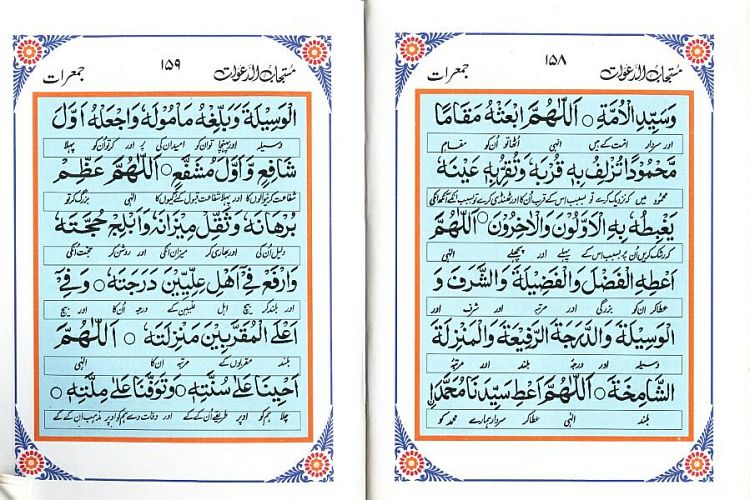 مستجاب الدعوات ۱۵۸ جمعرات
وَسَيِّدِ الْاُمَّةِ ۞ اَللّٰهُمَّ ابْعَثْهُ مَقَامًا
اور سردار امت کے ہیں الٰہی اٹھا تو اُن کو مقام
مَّحْمُوْدًا تُزْلِفُ بِهٖ قُرْبَهٗ وَتُقِرُّ بِهٖ عَيْنَهٗ
يَغْبِطُهٗ بِهِ الْاَوَّلُوْنَ وَالْاٰخِرُوْنَ ۞ اَللّٰهُمَّ
کہ رشک کریں اُن پر بسبب اس کے پہلے اور پچھلے الٰہی
اَعْطِهِ الْفَضْلَ وَالْفَضِيْلَةَ وَالشَّرَفَ وَ
عطا کر ان کو بزرگی اور مرتبہ اور شرف اور
الْوَسِيْلَةَ وَالدَّرَجَةَ الرَّفِيْعَةَ وَالْمَنْزِلَةَ
وسیلہ اور درجہ بلند اور مرتبہ
الشَّامِخَةَ ۞ اَللّٰهُمَّ اَعْطِ سَيِّدَنَا مُحَمَّدَ اِ
بلند الٰہی عطا کر سردار ہمارے محمد کو
مستجاب الدعوات ۱۵۹ جمعرات
الْوَسِيْلَةَ وَبَلِّغْهُ مَاْمُوْلَهٗ وَاجْعَلْهُ اَوَّلَ
وسیلہ اور پہنچا تو ان کو امید ان کی پر اور کر تو اُن کو پہلا
شَافِعٍ وَّاَوَّلَ مُشَفَّعٍ ۞ اَللّٰهُمَّ عَظِّمْ
شفاعت کرنیوالوں کا اور پہلا شفاعت قبول کئے گیوں کا الٰہی بزرگ کر تو
بُرْهَانَهٗ وَثَقِّلْ مِيْزَانَهٗ وَاَبْلِجْ حُجَّتَهٗ
دلیل اُن کی اور بھاری کر میزان انکی اور روشن کر حجت انکی
وَارْفَعْ فِيْٓ اَهْلِ عِلِّيِّيْنَ دَرَجَتَهٗ ۞ وَفِيْٓ
اور بلند کر بیچ اہل علیین کے درجہ اُن کا اور بیچ
اَعْلَى الْمُقَرَّبِيْنَ مَنْزِلَتَهٗ ۞ اَللّٰهُمَّ
بلند مقربوں کے مرتبہ ان کا الٰہی
اَحْيِنَا عَلٰى سُنَّتِهٖ ۞ وَتَوَفَّنَا عَلٰى مِلَّتِهٖ ۞
جلا ہم کو اوپر طریقے اُن کے کے اور وفات دے ہم کو اوپر مذہب ان کے کے